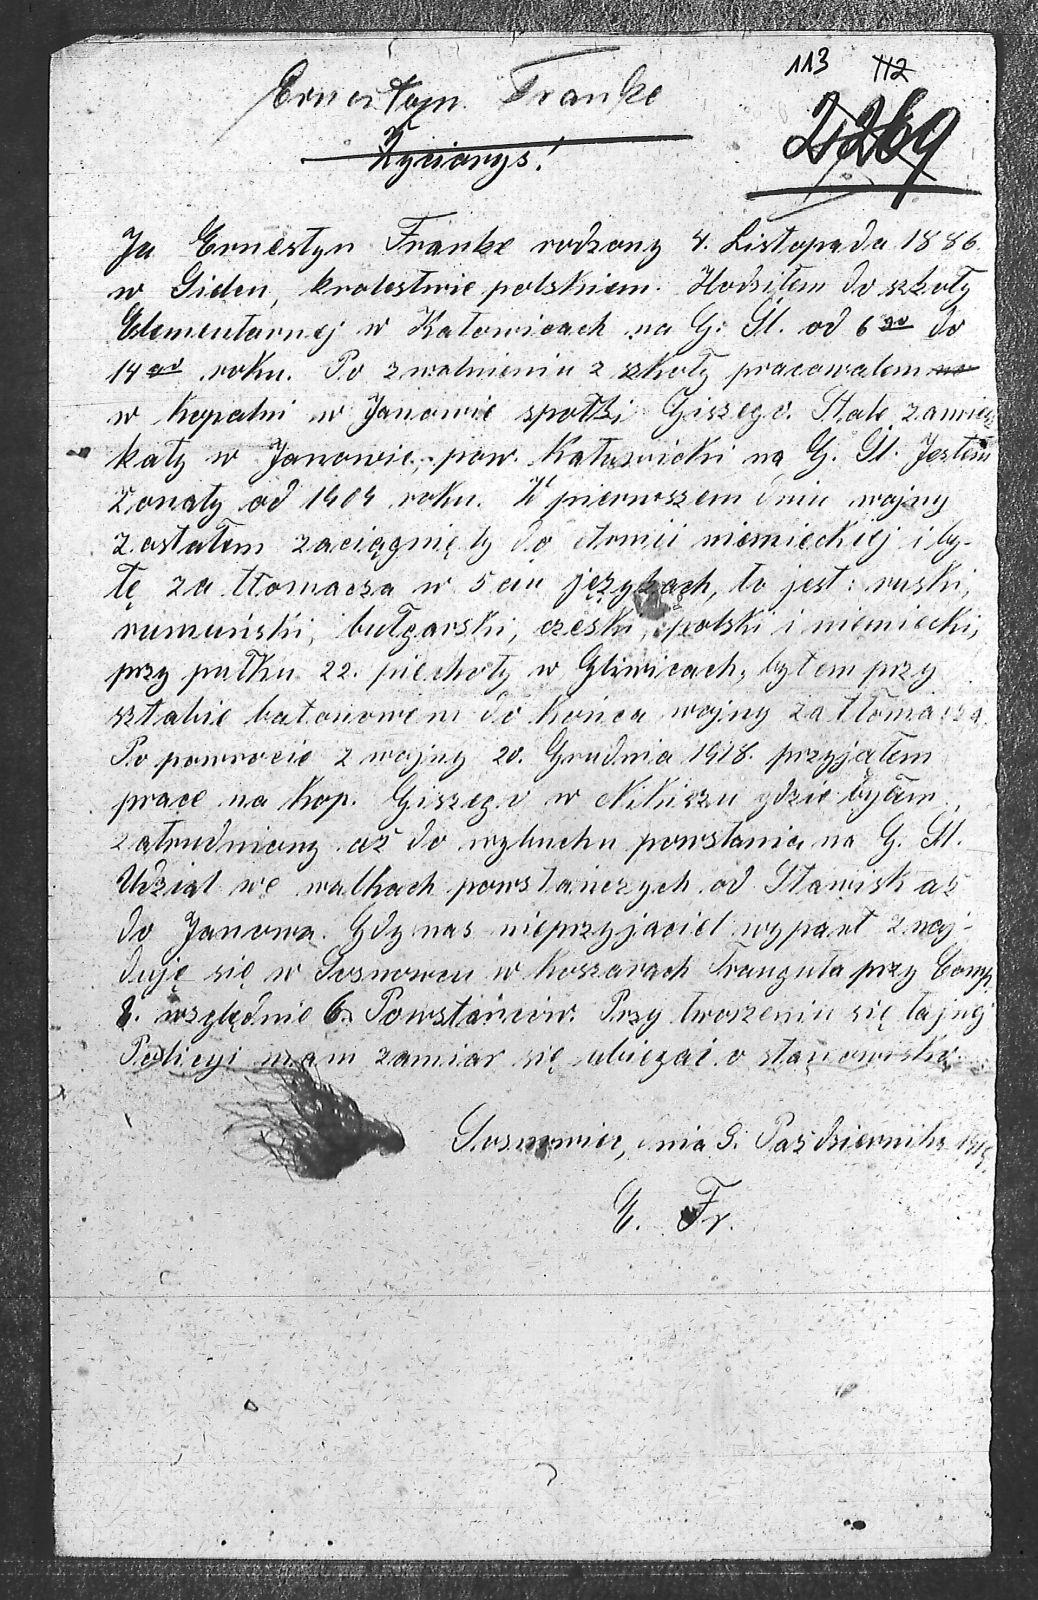 113 112
Ernestyn Franke
2269
Życiorys!
Ja Ernestyn Franke rodzony 4. Listopada 1886
w Gideu, krolestwie polskiem. Hodziłem do szkoły
Elementarnej w Katowicach na G. Śl. od 6go do
14go roku. Po zwolnieniu z szkoły pracowałem
w kopalni w Janowie społki Giszego. Stale zamiesz
kały w Janowie, pow. Katowicki na G. Śl. Jestem
żonaty od 1904 roku. W pierwszem dniu wojny
zostałem zaciągnięty do Armii niemieckiej i by-
łę za tłomacza w 5ciu językach, to jest: ruski,
rumuński, bułgarski, czeski, polski i niemiecki,
przy pułku 22. piechoty w Gliwicach, byłem przy
sztabie batonowem do końca wojny za tłomacza.
Po powrocie z wojny 20. Grudnia 1918. przyjąłem
prace na kop. Giszego w Nikiszu gdzie byłem
zatrudniony aż do wybuchu powstania na G. Śl.
Udział we walkach powstańczych od Stawisk aż
do Janowa. Gdy nas nieprzyjaciel wyparł znaj-
duję się w Sosnowcu w koszarach Trauguta przy Comp.
8. względnie 6. Powstańców. Przy tworzeniu się tajnej
Policyi mam zamiar się ubiegać o stanowisko.
Sosnowiec, dnia 9. Październik 1919.
E. Fr.